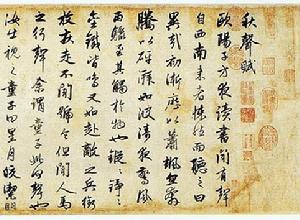 秋聲賦
歐陽子方夜讀書聞有聲
自西南來者悚然而聽之曰
異哉初淅瀝以蕭颯忽奔
騰以砰湃如波濤夜驚風
雨驟至其觸於物也鏦〻錚〻
金鐵皆鳴又如赴敵之兵銜
枚疾走不聞號令但聞人馬
之行聲余謂童子此何聲也
汝出視之童子曰星月皎潔明